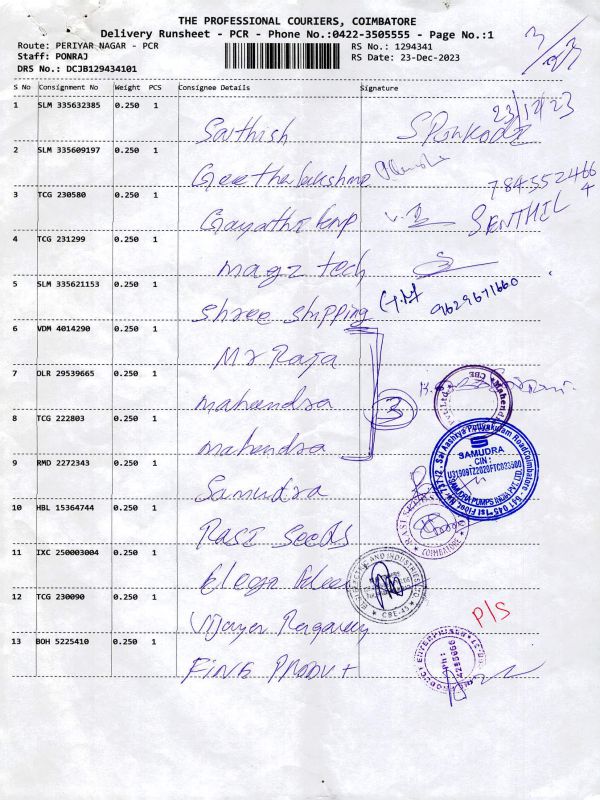 THE PROFESSIONAL COURIERS, COIMBATORE
Delivery Runsheet - PCR - Phone No.:0422-3505555 - Page No.:1
Route: PERIYAR NAGAR - PCR
RS No.: 1294341
Staff: PONRAJ
RS Date: 23-Dec-2023
DRS No.: DCJB129434101
S No Consignment No Weight PCS Consignee Details Signature
23/12/23
1 SLM 335632385 0.250 1
Saithish
2 SLM 335609197 0.250 1
Geethalakshmi
784552466
4
3 TCG 230580 0.250 1
Gayathri SENTHIL
4 TCG 231299 0.250 1
magz tech
5 SLM 335621153 0.250 1
Shree Shipping 9629671660
6 VDM 4014290 0.250 1
Mr Raja
7 DLR 29539665 0.250 1
mahendra 3
8 TCG 222803 0.250 1
mahendra
9 RMD 2272343 0.250 1
Samudra
SAMUDRA
CIN :
SAMUDRA PUMPS INDIA PVT LTD
10 HBL 15364744 0.250 1
Rasi Seeds
COIMBATORE
11 IXC 250003004 0.250 1
12 TCG 230090 0.250 1
P/S
13 BOH 5225410 0.250 1
FINE PRODUT